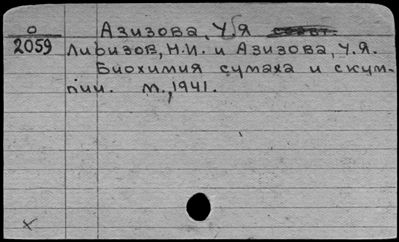 О Азизова, У Я
2059 Лиризов, Н.И. и Азизова, У.Я.
Биохимия сумаха и скум-
пии. М., 1941.
х